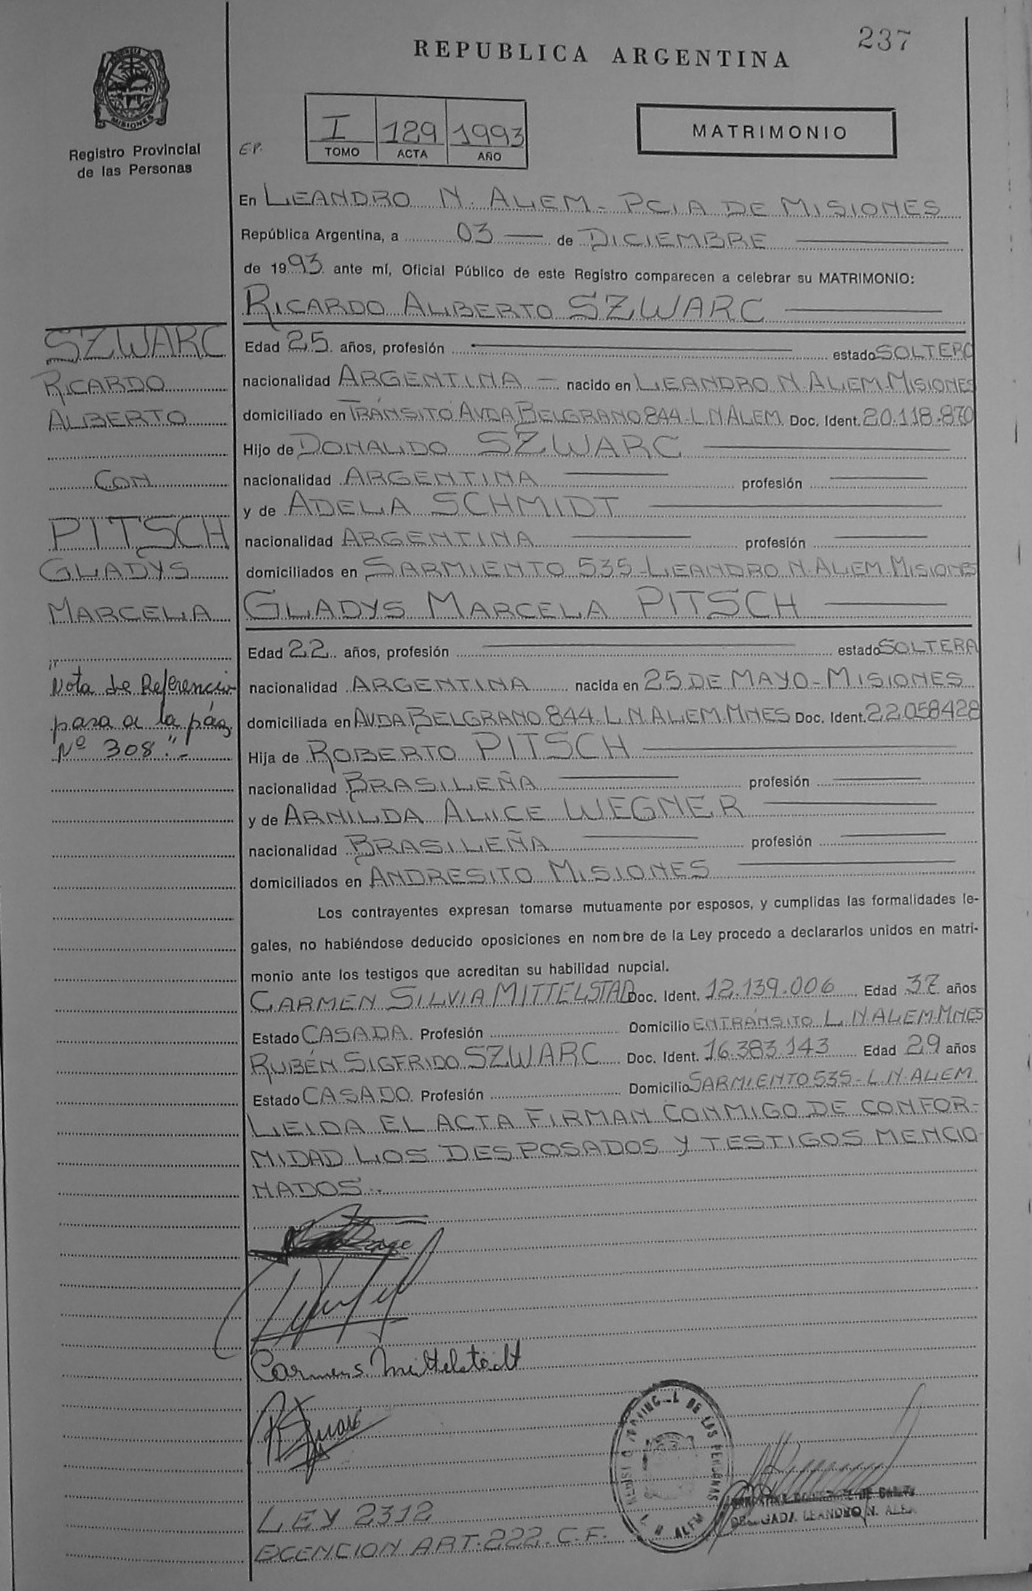 237
REPUBLICA ARGENTINA
MISIONES
Registro Provincial
de las Personas
E.P.
I 129 1993
TOMO ACTA AÑO
MATRIMONIO
En LEANDRO N. ALEM - PCIA DE MISIONES
República Argentina, a 03 — de DICIEMBRE
de 1993 ante mí, Oficial Público de este Registro comparecen a celebrar su MATRIMONIO:
RICARDO ALBERTO SZWARC
SZWARC
RICARDO
ALBERTO
CON
PITSCH
GLADYS
MARCELA
"Nota de Referencia
para a la pág.
Nº 308".-
Edad 25 años, profesión estado SOLTERO
nacionalidad ARGENTINA — nacido en LEANDRO N. ALEM. MISIONES
domiciliado en TRÁNSITO AVDA BELGRANO 844-L.N ALEM. Doc. Ident. 20.118.870
Hijo de DONALDO SZWARC
nacionalidad ARGENTINA profesión
y de ADELA SCHMIDT
nacionalidad ARGENTINA profesión
domiciliados en SARMIENTO 535-LEANDRO N. ALEM. MISIONES
GLADYS MARCELA PITSCH
Edad 22 años, profesión estado SOLTERA
nacionalidad ARGENTINA nacida en 25 DE MAYO - MISIONES
domiciliada en AVDA BELGRANO 844-L.N ALEM. MNES Doc. Ident. 22.058428
Hija de ROBERTO PITSCH
nacionalidad BRASILEÑA profesión
y de ARNILDA ALICE WEGNER
nacionalidad BRASILEÑA profesión
domiciliados en ANDRESITO MISIONES
Los contrayentes expresan tomarse mutuamente por esposos, y cumplidas las formalidades le-
gales, no habiéndose deducido oposiciones en nombre de la Ley procedo a declararlos unidos en matri-
monio ante los testigos que acreditan su habilidad nupcial.
CARMEN SILVIA MITTELSTAD Doc. Ident. 12.139.006 Edad 37 años
Estado CASADA. Profesión Domicilio EN TRÁNSITO L.N ALEM. MNES
RUBÉN SIGFRIDO SZWARC Doc. Ident. 16.383.143 Edad 29 años
Estado CASADO. Profesión Domicilio SARMIENTO 535-L.N. ALEM
LEIDA EL ACTA FIRMAN CONMIGO DE CONFOR-
MIDAD LOS DESPOSADOS Y TESTIGOS MENCIO-
NADOS.-
Carmen S. Mittelstedt
DE LAS PERSONAS
L. N. ALEM
DELEGADA LEANDRO N. ALEM
LEY 2312
EXCENCION ART. 222. C.F.